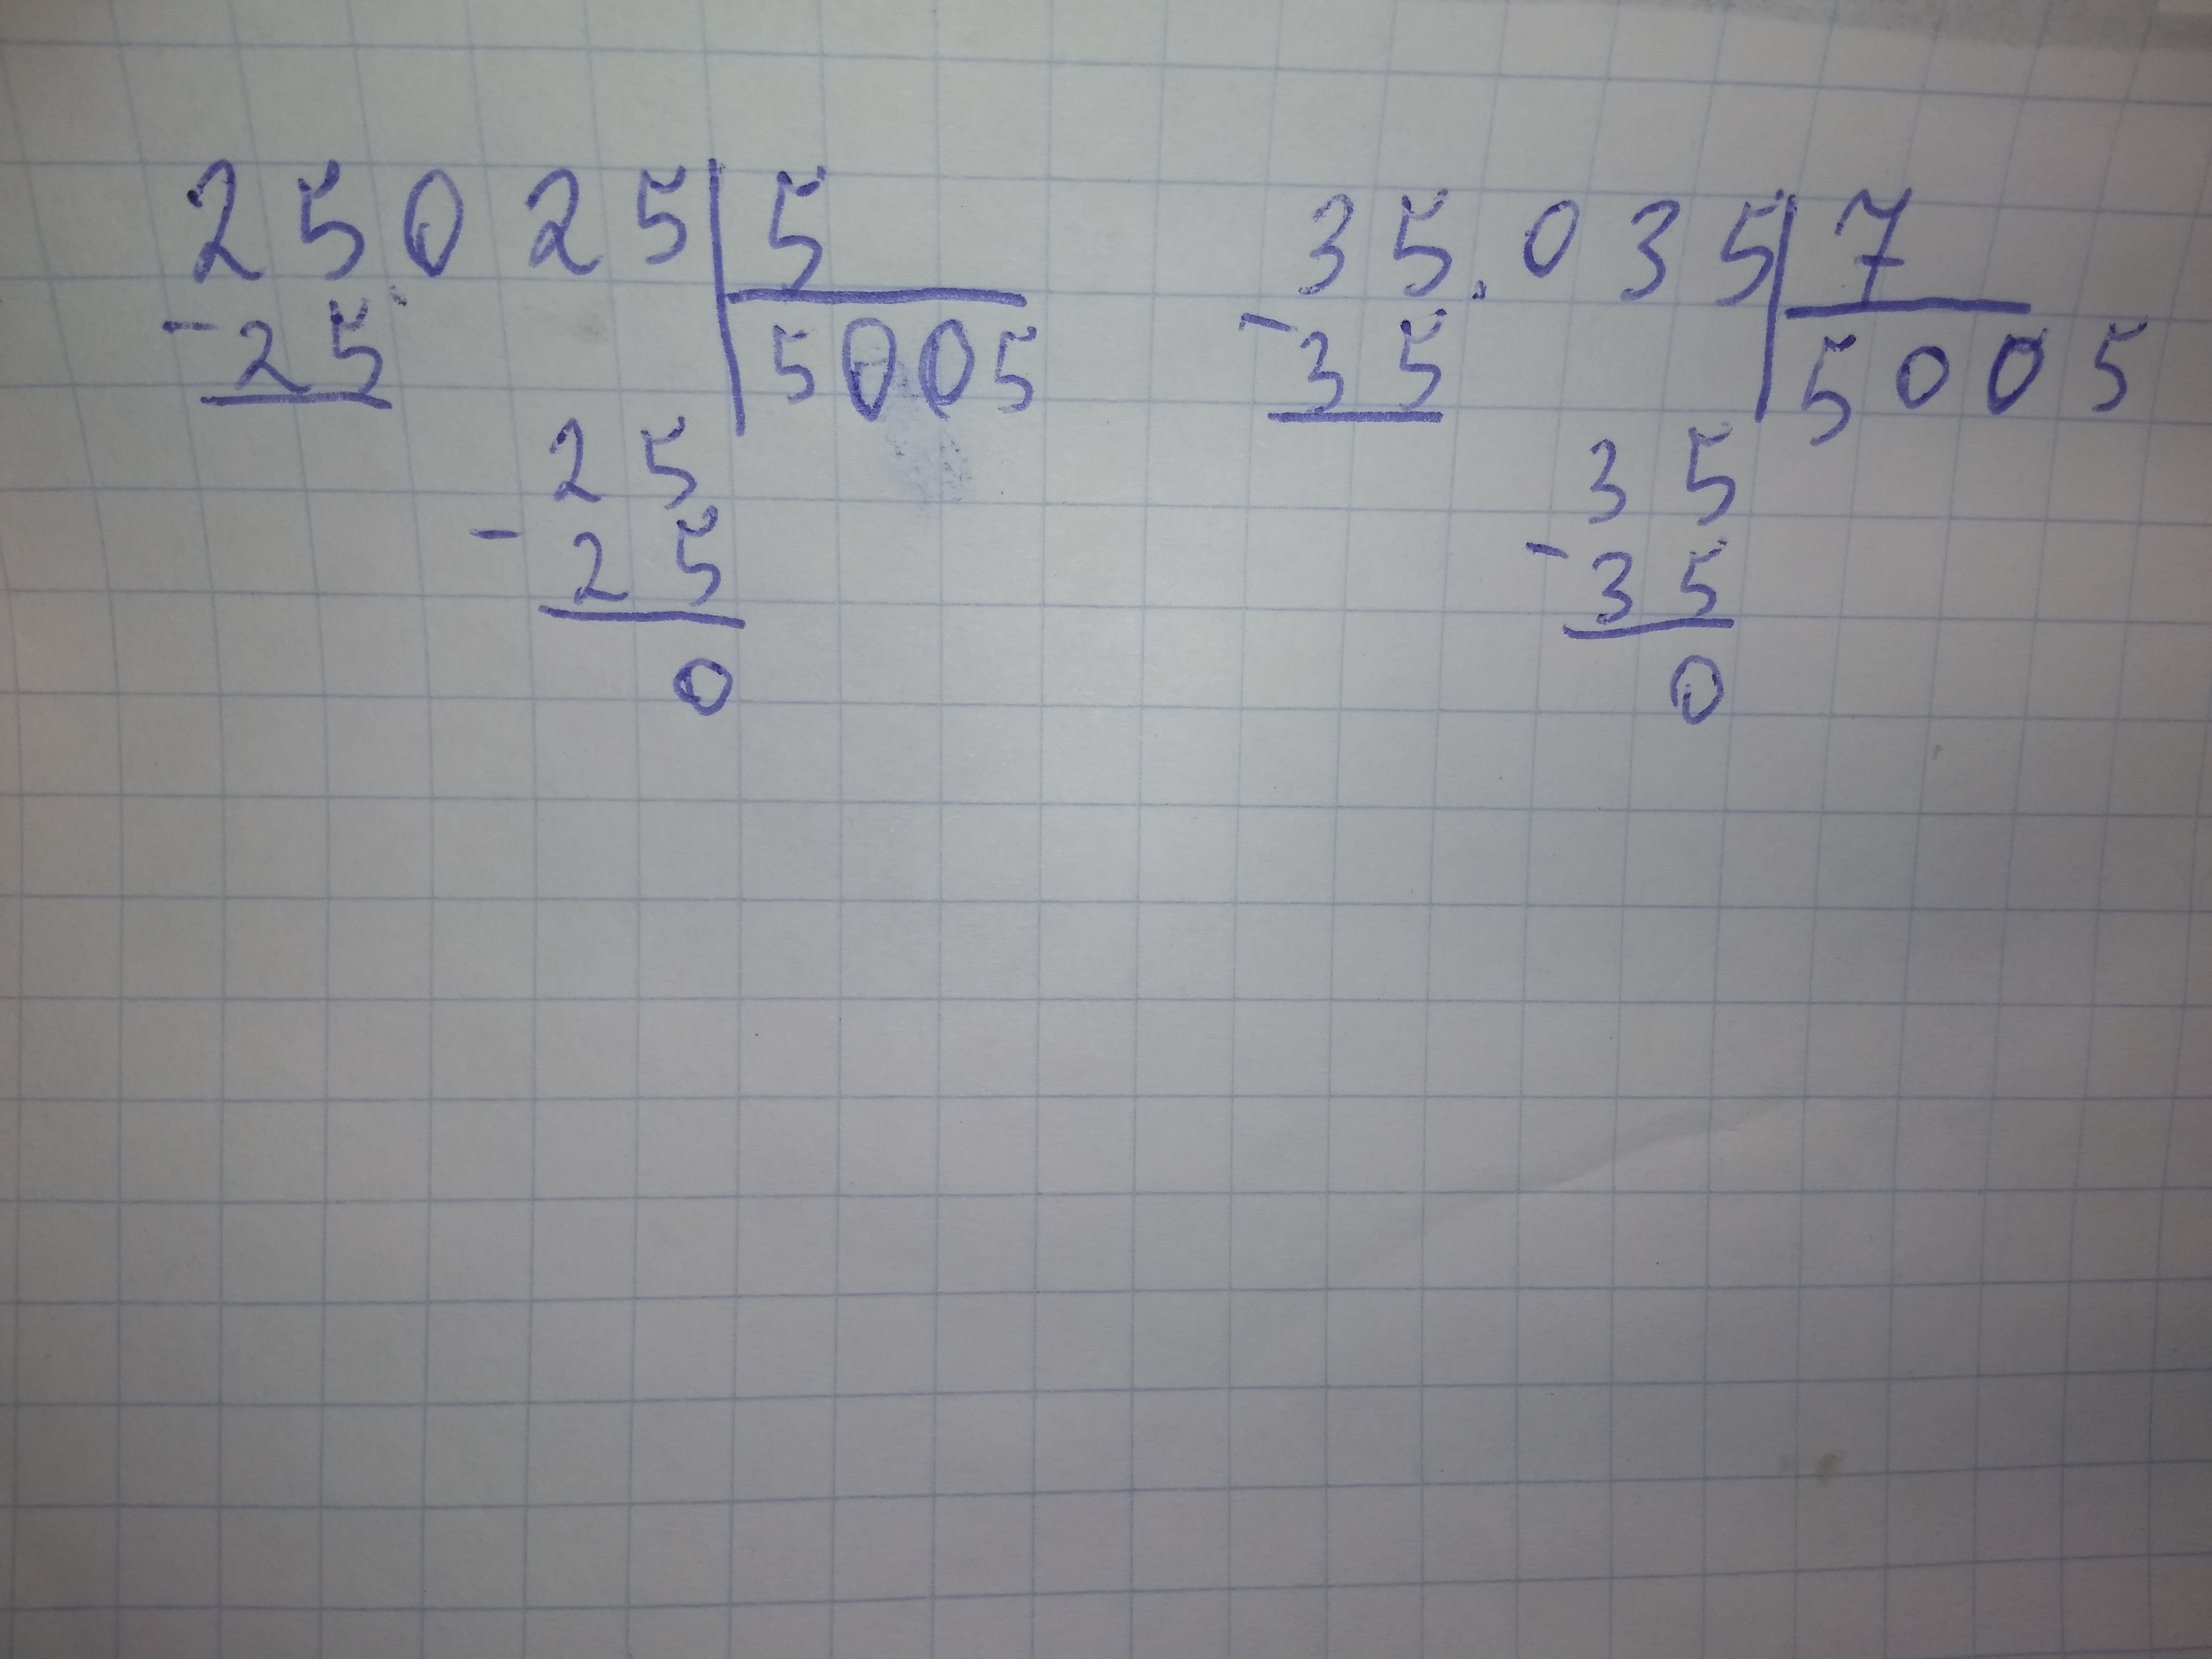 25025 5
-25 5005
25
-25
0
35.035 7
-35 5005
35
-35
0